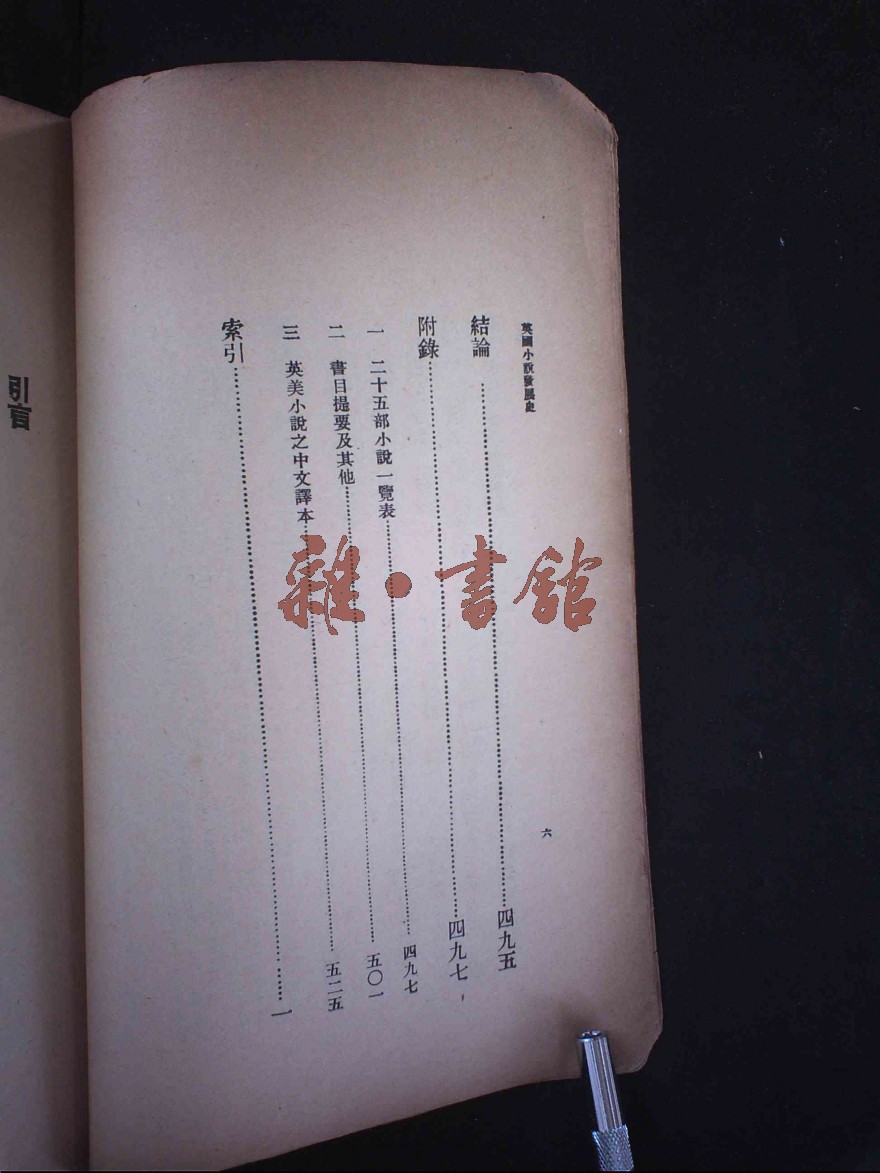 英國小說發展史
六
結論……四九五
附錄……四九七
一 二十五部小說一覽表……四九七
二 書目提要及其他……五〇一
三 英美小說之中文譯本……五二五
索引……一
引言
雜·書館